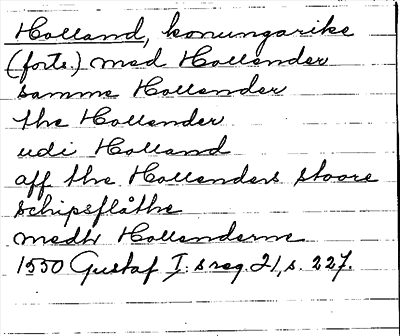 Holland, konungarike
(forts.) med Hollender
samme Hollender
the Hollender
udi Holland
aff the Hollenders stoore
schipsflåthe
medh Hollenderne
1550 Gustaf I: s reg. 21, s. 227.